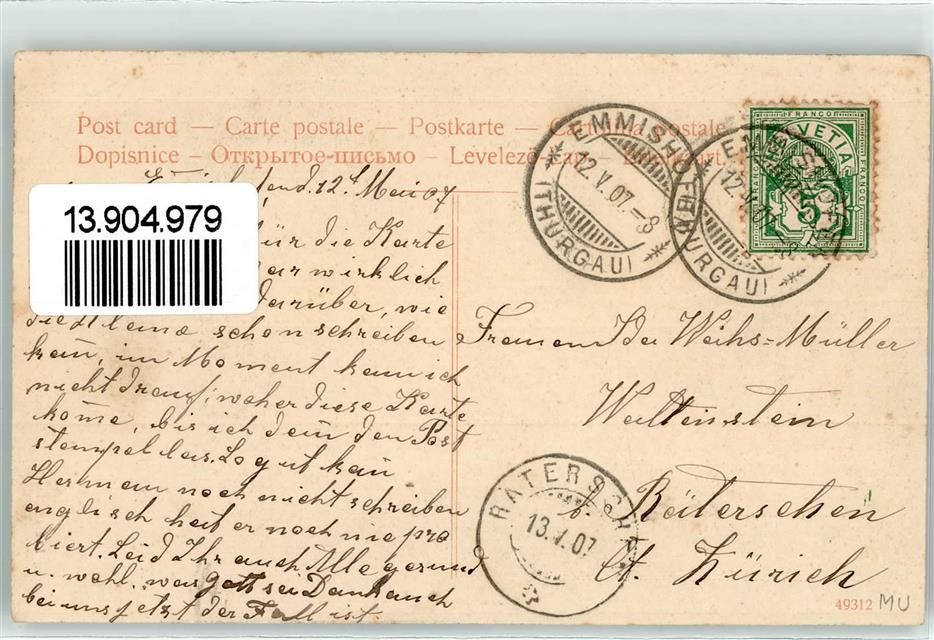 Post card — Carte postale — Postkarte — Cartolina postale
Dopisnice — Открытое-письмо — Levelező-Lap
12t Mai 07
13.904.979
für die Karte
war wirklich
darüber, wie
die Kleine schon schreiben
kan̄, im Moment kam ich
nicht drauf, woher diese Karte
kom̄e, bis ich dem den Post
stempel las. So gut kan̄
Herman noch nicht schreiben
englisch heit er noch nie pro
biert. Seid Ihr auch Alle gesund
u. wohl, was Gott sei Dank auch
bei uns jetzt der Fall ist.
EMMISHOFEN
12.V.07.-8
(THURGAU)
EMMISHOFEN
12.V.07.-8
(THURGAU)
FRANCO
HELVETIA
5
FRANCO
Frau Ida Weihs=Müller
Waltenstein
b. Räterschen
Ct. Zürich
RÄTERSCHEN
13.V.07
49312 MU